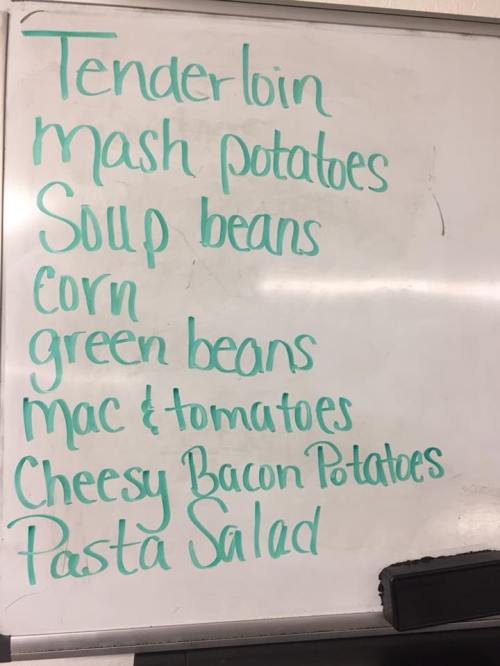 Tenderloin
mash potatoes
Soup beans
Corn
green beans
mac & tomatoes
Cheesy Bacon Potatoes
Pasta Salad